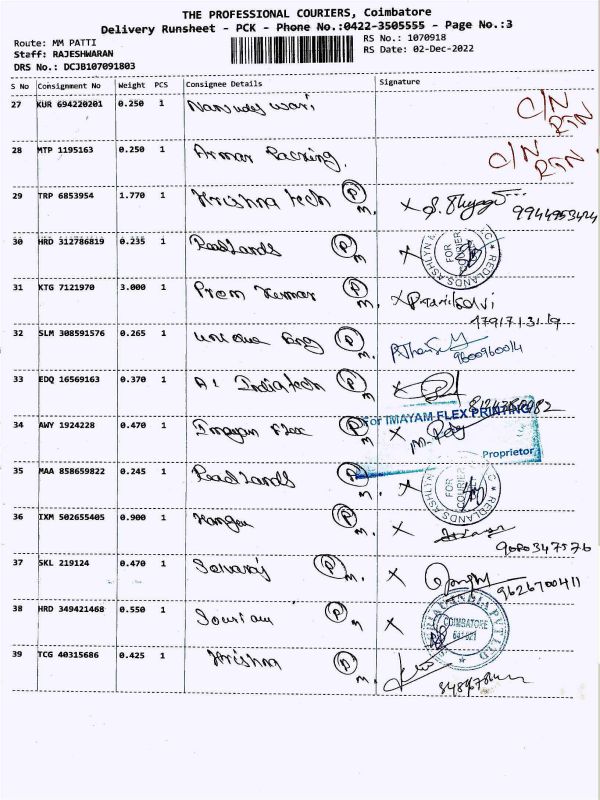 THE PROFESSIONAL COURIERS, Coimbatore
Delivery Runsheet - PCK - Phone No.:0422-3505555 - Page No.:3
Route: MM PATTI
RS No.: 1070918
Staff: RAJESHWARAN
RS Date: 02-Dec-2022
DRS No.: DCJB107091803
S No Consignment No Weight PCS Consignee Details Signature
27 KUR 694220201 0.250 1 C/N RTN
28 MTP 1195163 0.250 1 Armar Packing. C/N RTN
29 TRP 6853954 1.770 1 Krishna tech P M.
30 HRD 312786819 0.235 1 P M FOR COURIER REDLANDS ASHLYN
31 KTG 7121970 3.000 1 Prem Kumar P M
32 SLM 308591576 0.265 1 P M 9600960014
33 EDQ 16569163 0.370 1 A1 India tech P M
34 AWY 1924228 0.470 1 Imayam Flex P M For IMAYAM FLEX PRINTING
Proprietor
35 MAA 858659822 0.245 1 P M FOR COURIER REDLANDS ASHLYN
36 IXM 502655405 0.900 1 P M 9080347576
37 SKL 219124 0.470 1 Selvaraj P M. 9626700411
38 HRD 349421468 0.550 1 P M COIMBATORE
39 TCG 40315686 0.425 1 Krishna P M.